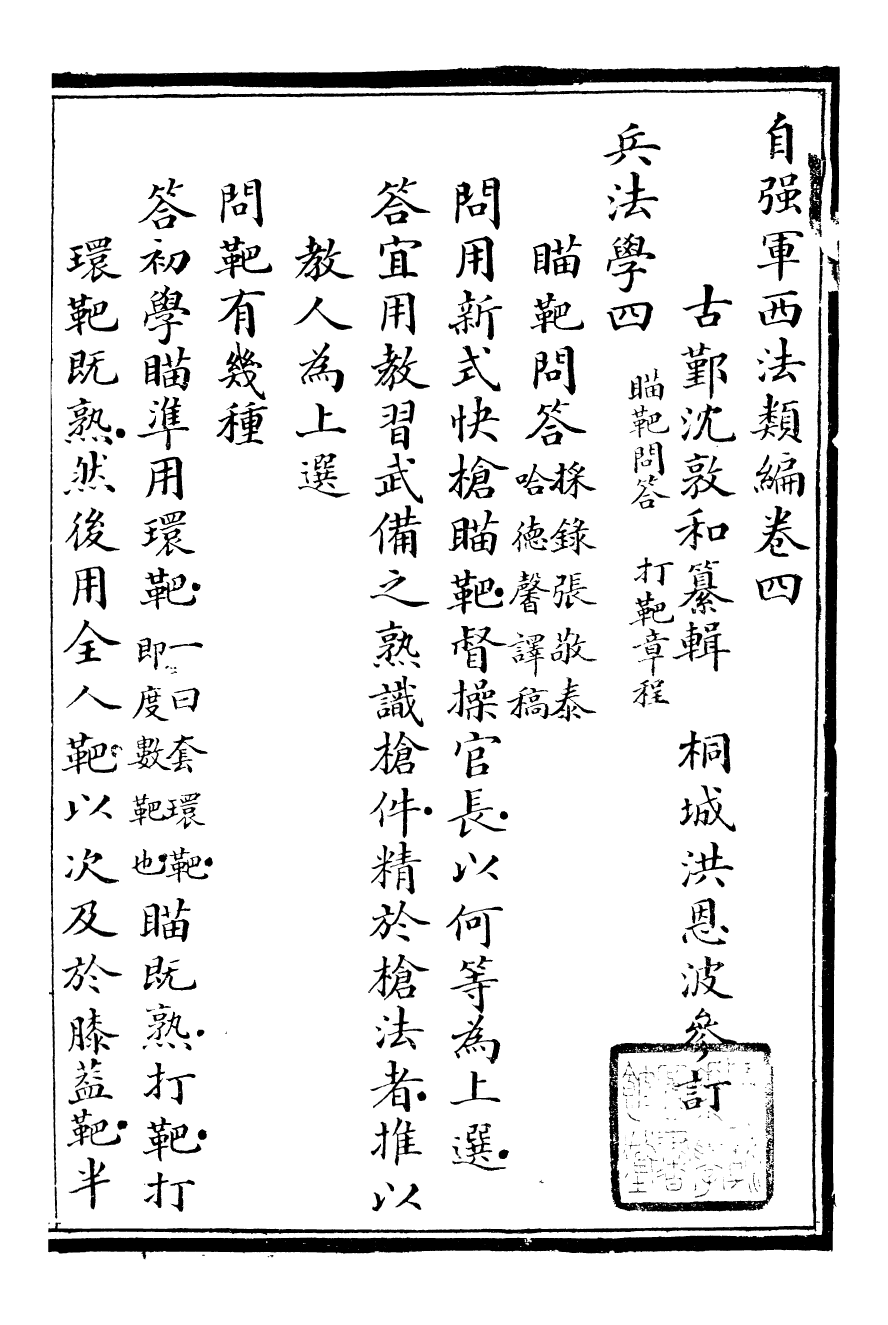 自强軍西法類編卷四
古鄞沈敦和纂輯　桐城洪恩波參訂
兵法學四　瞄靶問答　打靶章程
瞄靶問答　採錄張敬泰
哈德馨譯稿
問用新式快槍瞄靶·督操官長·以何等為上選·
答宜用教習武備之熟識槍件·精於槍法者·推以
教人為上選
問靶有幾種
答初學瞄準用環靶·一曰套環靶·
即度數靶也·瞄既熟·打靶·打
環靶既熟·然後用全人靶·以次及於膝蓋靶·半